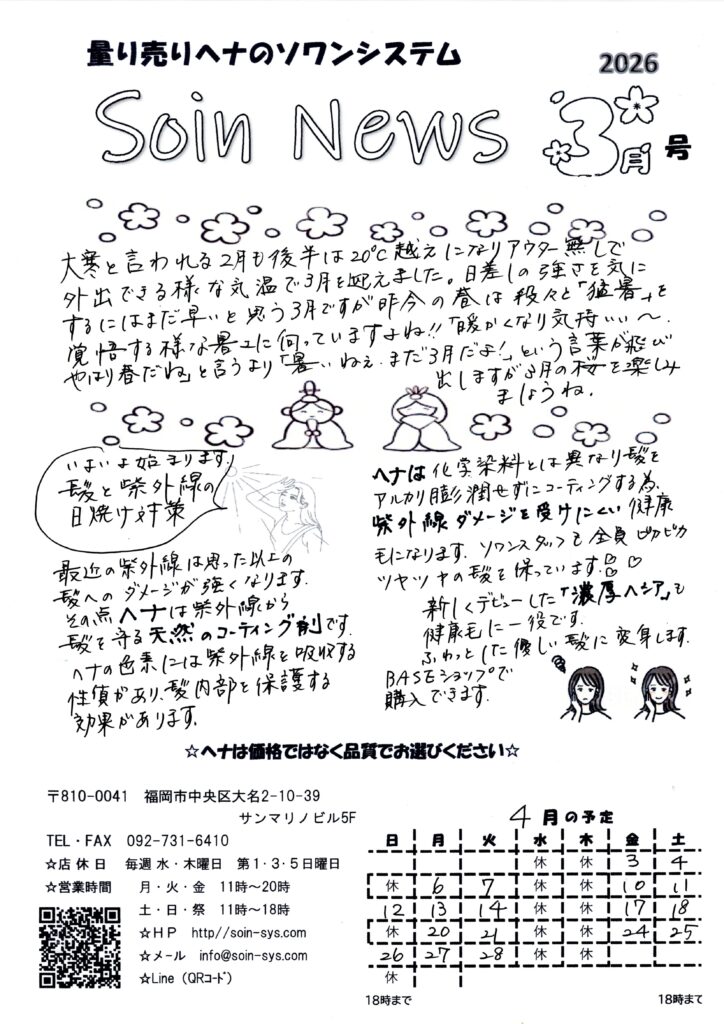 量り売りヘナのソワンシステム
2026
Soin News 3月号
大寒と言われる2月も後半は20℃越えになりアウター無しで
外出できる様な気温で3月を迎えました。日差しの強さを気に
するにはまだ早いと思う3月ですが昨今の春は段々と「猛暑」を
覚悟する様な暑さに向っていますよね!!「暖かくなり気持いい〜.
やはり春だね」と言うより「暑いねぇ.まだ3月だよ!」という言葉が飛び
出しますが3月の桜を楽しみ
ましょうね.
いよいよ始まります!
髪と紫外線の
日焼け対策
最近の紫外線は思った以上の
髪へのダメージが強くなります.
その点ヘナは紫外線から
髪を守る天然のコーティング剤です.
ヘナの色素には紫外線を吸収する
性質があり、髪内部を保護する
効果があります.
ヘナは化学染料とは異なり髪を
アルカリ膨潤せずにコーティングする為、
紫外線ダメージを受けにくい健康
毛になります.ソワンスタッフも全員ピカピカ
ツヤツヤの髪を保っています!
新しくデビューした「濃厚ヘシア」も
健康毛に一役です.
ふわっとした優しい髪に変身します.
BASEショップで
購入できます.
☆ヘナは価格ではなく品質でお選びください☆
〒810-0041 福岡市中央区大名2-10-39
サンマリノビル5F
TEL・FAX 092-731-6410
☆店休日 毎週水・木曜日 第1・3・5日曜日
☆営業時間 月・火・金 11時～20時
土・日・祭 11時～18時
☆HP http//soin-sys.com
☆メール info@soin-sys.com
☆Line (QRコード)
4月の予定
日 月 火 水 木 金 土
休 休 3 4
休 6 7 休 休 10 11
12 13 14 休 休 17 18
休 20 21 休 休 24 25
26 27 28 休 休
休
18時まで 18時まで